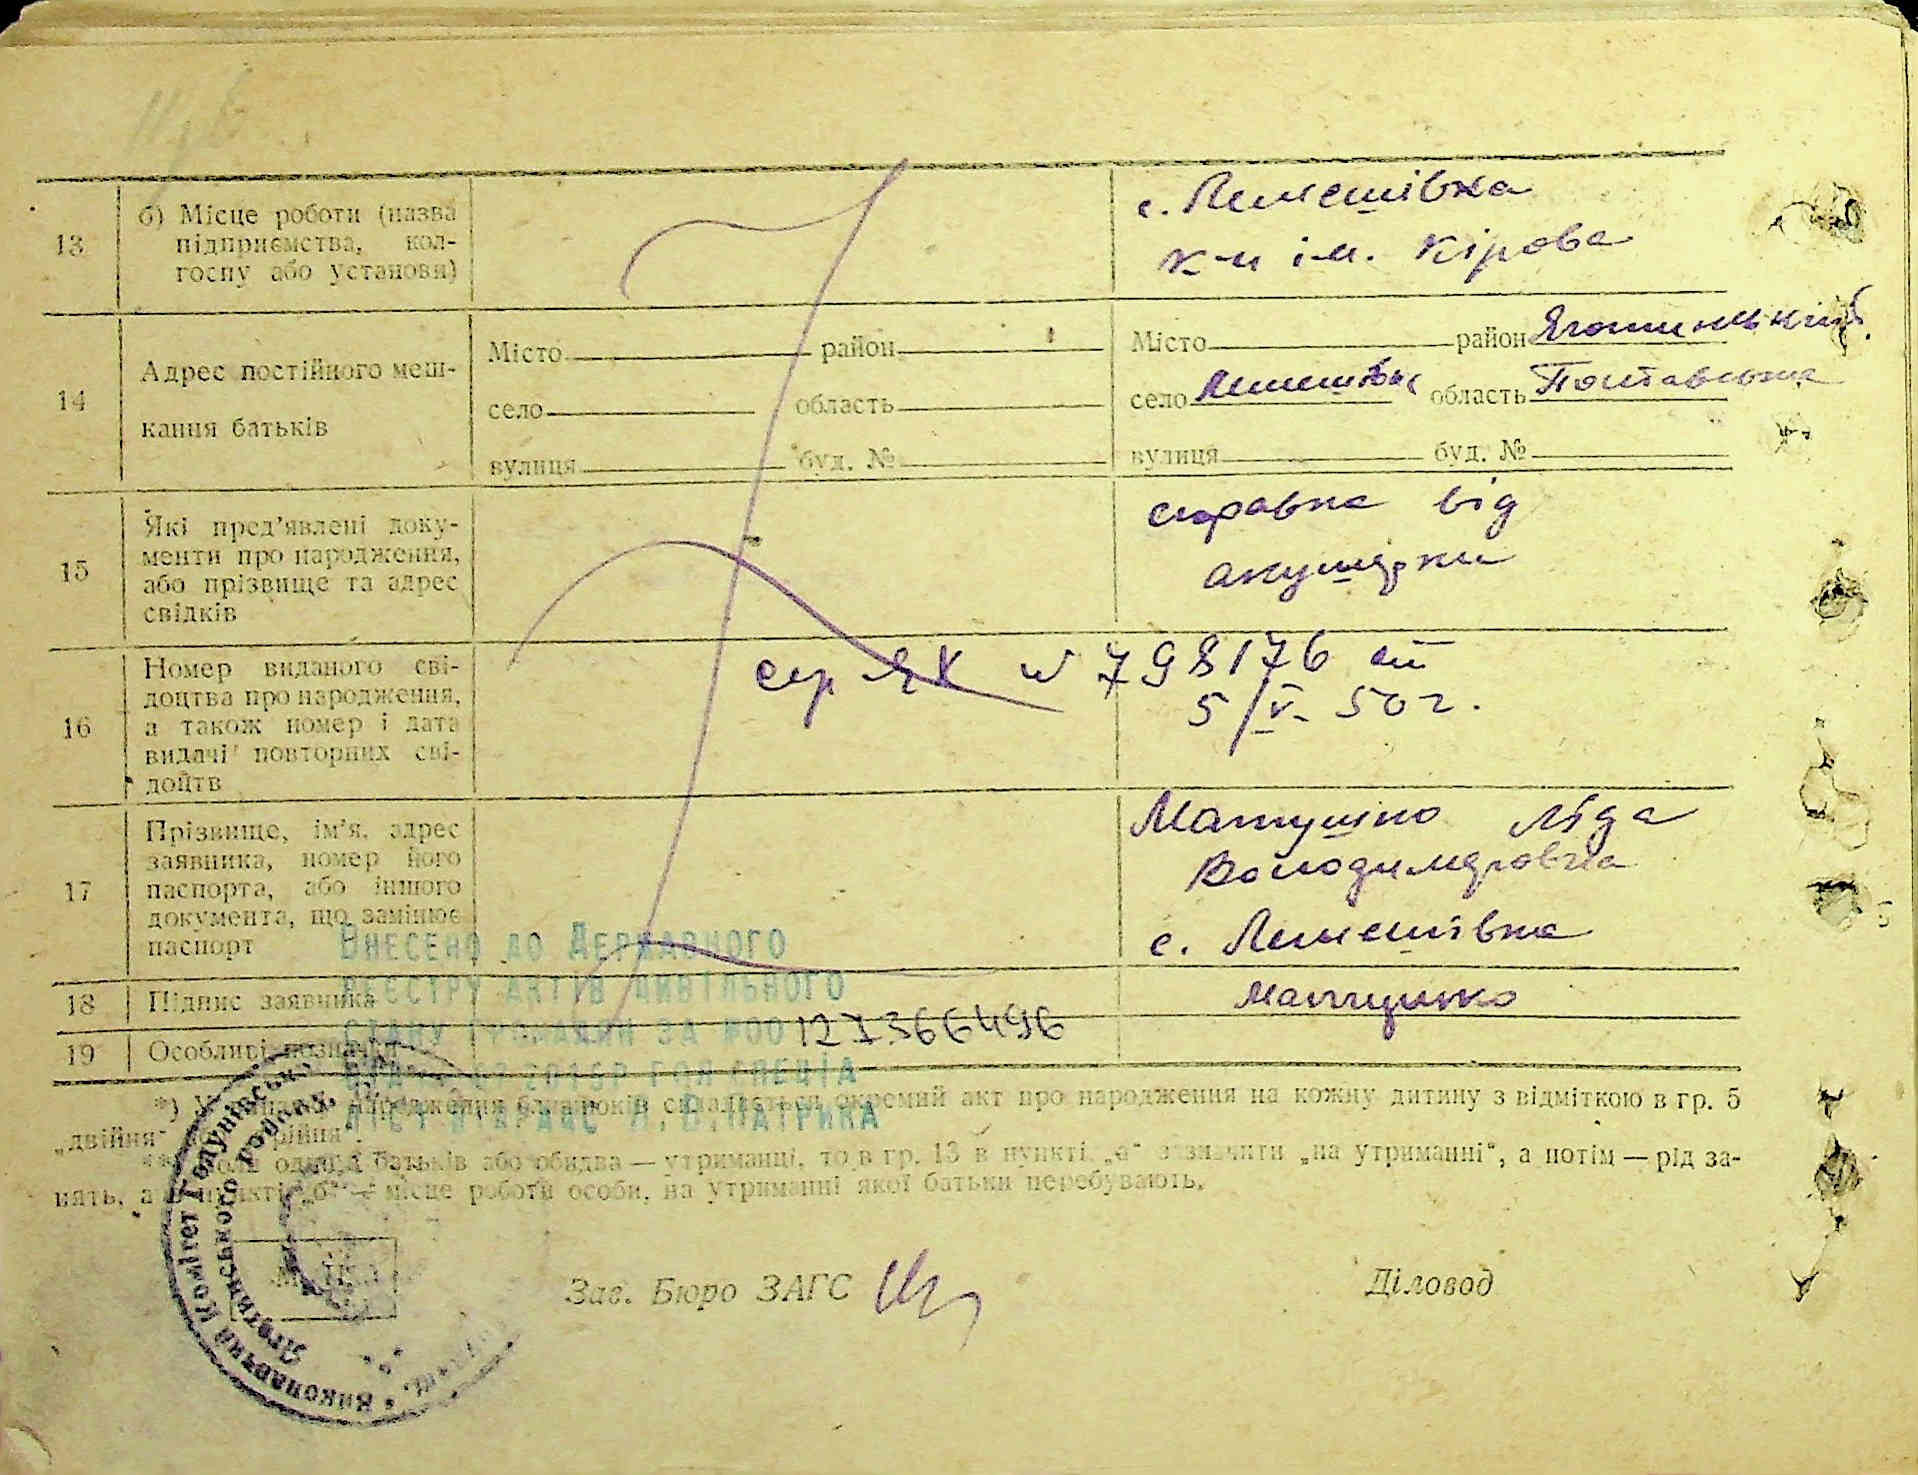 13
б) Місце роботи (назва
підприємства, кол-
госпу або установи)
с. Лемешівка
к-п ім. Кірова
14
Адрес постійного меш-
кання батьків
Місто район
село область
вулиця буд. №
Місто район Яготинський
село Лемешівка область Полтавська
вулиця буд. №
15
Які пред'явлені доку-
менти про народження,
або прізвище та адрес
свідків
справка від
акушерки
16
Номер виданого сві-
доцтва про народження,
а також номер і дата
видачі повторних сві-
доцтв
сер ЯК № 798176 от
5/V- 50 г.
17
Прізвище, ім'я, адрес
заявника, номер його
паспорта, або іншого
документа, що замінює
паспорт
Матушко Ліда
Володимировна
с. Лемешівка
18
Підпис заявника
Матушко
19
Особливі позначки
Внесено до Державного
реєстру актів цивільного
стану громадян за №00 127366496
*) У випадкі народження близнюків складається окремий акт про народження на кожну дитину з відміткою в гр. 5
„двійня"
**) Коли один з батьків або обидва — утриманці, то в гр. 13 в пункті „а" зазначити „на утриманні", а потім — рід за-
нять, а в пункті „б" — місце роботи особи, на утриманні якої батьки перебувають.
Виконавчий Комітет
Яготинського
Зав. Бюро ЗАГС
Діловод